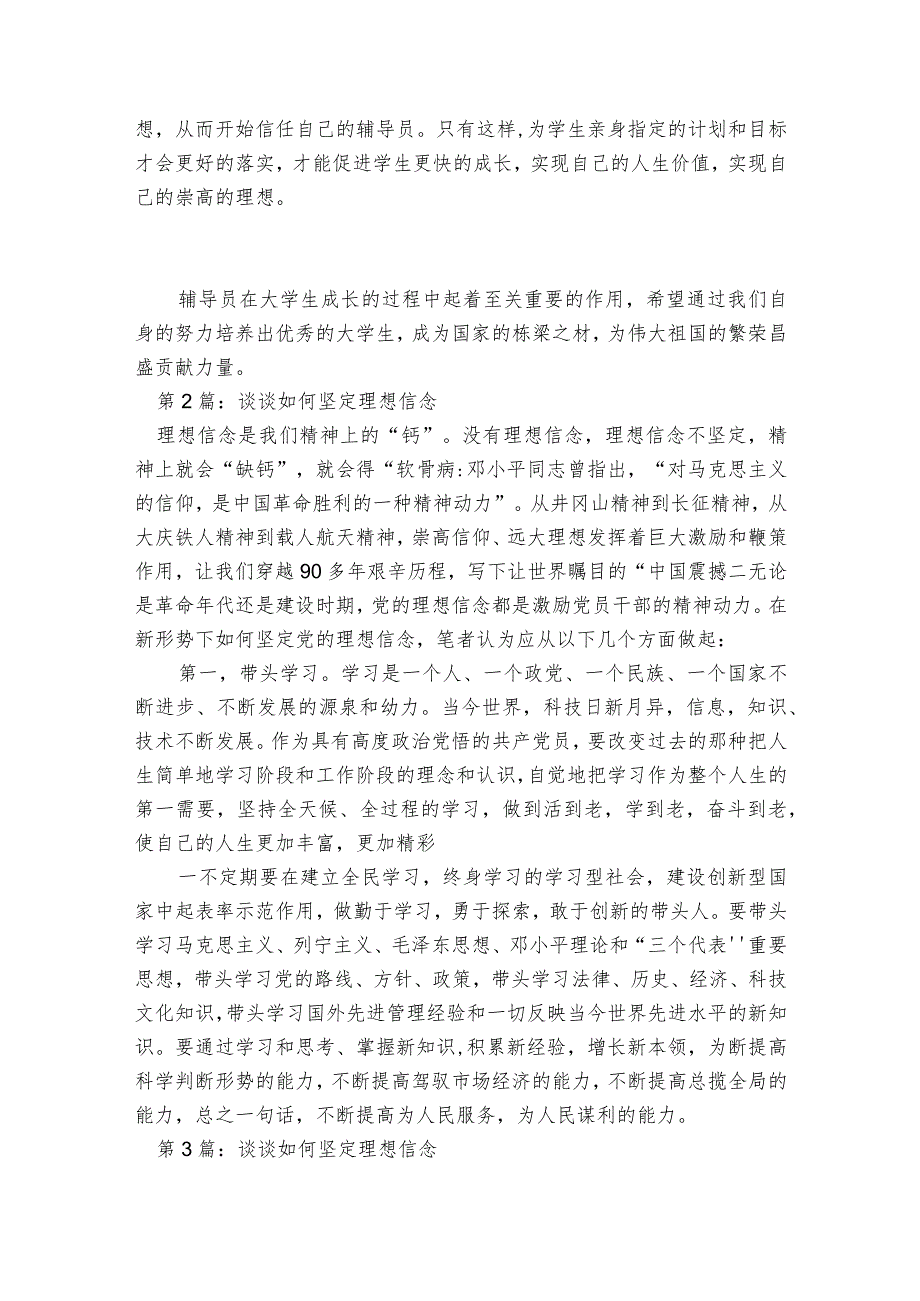 想，从而开始信任自己的辅导员。只有这样,为学生亲身指定的计划和目标
才会更好的落实，才能促进学生更快的成长，实现自己的人生价值，实现自
己的崇高的理想。
辅导员在大学生成长的过程中起着至关重要的作用，希望通过我们自
身的努力培养出优秀的大学生，成为国家的栋梁之材，为伟大祖国的繁荣昌
盛贡献力量。
第2篇：谈谈如何坚定理想信念
理想信念是我们精神上的“钙”。没有理想信念，理想信念不坚定，精
神上就会“缺钙”，就会得“软骨病:邓小平同志曾指出，“对马克思主义
的信仰，是中国革命胜利的一种精神动力”。从井冈山精神到长征精神，从
大庆铁人精神到载人航天精神，崇高信仰、远大理想发挥着巨大激励和鞭策
作用，让我们穿越90多年艰辛历程，写下让世界瞩目的“中国震撼二无论
是革命年代还是建设时期，党的理想信念都是激励党员干部的精神动力。在
新形势下如何坚定党的理想信念，笔者认为应从以下几个方面做起：
第一，带头学习。学习是一个人、一个政党、一个民族、一个国家不
断进步、不断发展的源泉和幼力。当今世界，科技日新月异，信息，知识、
技术不断发展。作为具有高度政治党悟的共产党员，要改变过去的那种把人
生简单地学习阶段和工作阶段的理念和认识,自觉地把学习作为整个人生的
第一需要，坚持全天候、全过程的学习，做到活到老，学到老，奋斗到老，
使自己的人生更加丰富，更加精彩
一不定期要在建立全民学习，终身学习的学习型社会，建设创新型国
家中起表率示范作用，做勤于学习，勇于探索，敢于创新的带头人。要带头
学习马克思主义、列宁主义、毛泽东思想、邓小平理论和“三个代表''重要
思想，带头学习党的路线、方针、政策，带头学习法律、历史、经济、科技
文化知识,带头学习国外先进管理经验和一切反映当今世界先进水平的新知
识。要通过学习和思考、掌握新知识,积累新经验，增长新本领，为断提高
科学判断形势的能力,不断提高驾驭市场经济的能力,不断提高总揽全局的
能力，总之一句话，不断提高为人民服务，为人民谋利的能力。
第3篇：谈谈如何坚定理想信念